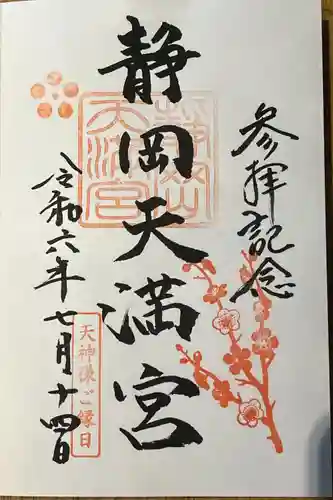 参拝記念
静岡天満宮
令和六年七月十四日
天神様ご縁日
静岡
天満宮